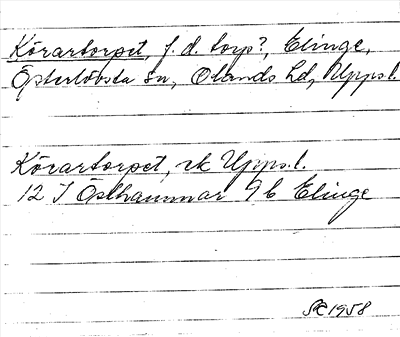 Körartorpet, f.d. torp?, Elinge,
Österlövsta sn, Olands hd, Upps.l.
Körartorpet, rk Upps.l.
12 I Östhammar 9 b Elinge
1958